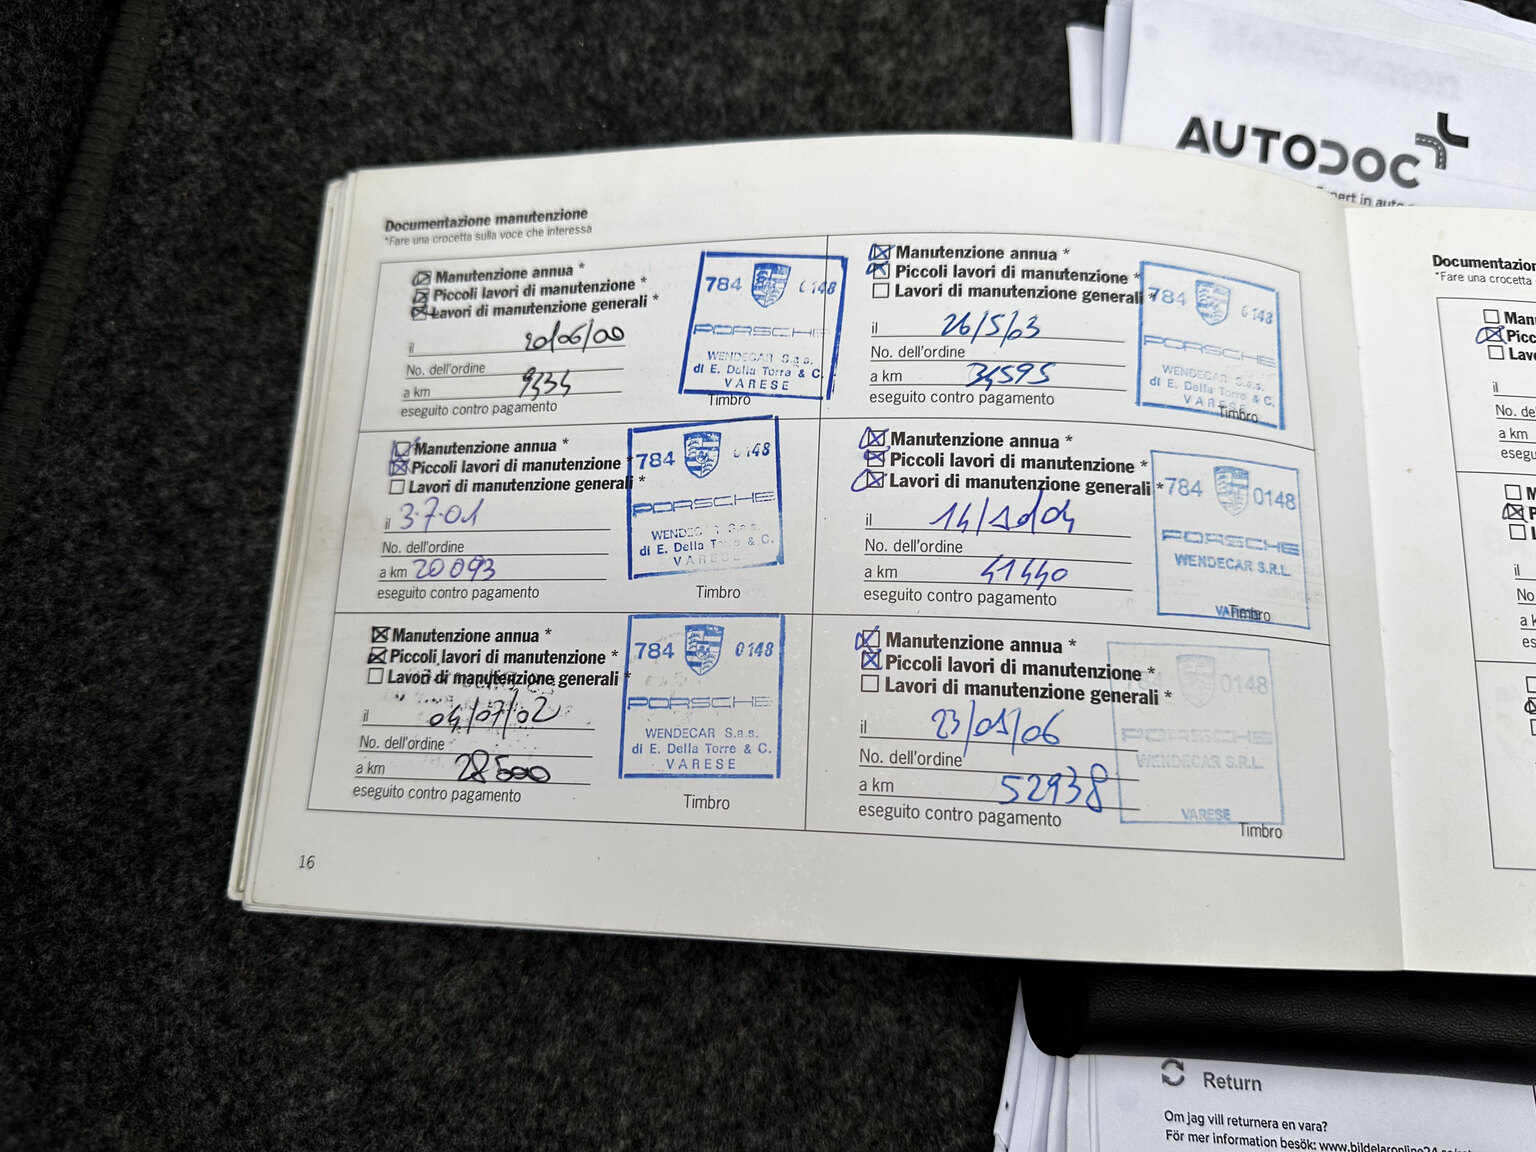 AUTODOC
Documentazione manutenzione
*Fare una crocetta sulla voce che interessa
Manutenzione annua *
Piccoli lavori di manutenzione *
Lavori di manutenzione generali *
il 20/06/00
No. dell'ordine
a km 9434
eseguito contro pagamento
784 0148
PORSCHE
WENDECAR S.a.s.
di E. Della Torre & C.
VARESE
Timbro
Manutenzione annua *
Piccoli lavori di manutenzione *
Lavori di manutenzione generali *
il 3-7-01
No. dell'ordine
a km 20093
eseguito contro pagamento
784 0148
PORSCHE
WENDECAR S.a.s.
di E. Della Torre & C.
VARESE
Timbro
Manutenzione annua *
Piccoli lavori di manutenzione *
Lavori di manutenzione generali *
il 04/07/02
No. dell'ordine
a km 28500
eseguito contro pagamento
784 0148
PORSCHE
WENDECAR S.a.s.
di E. Della Torre & C.
VARESE
Timbro
16
Manutenzione annua *
Piccoli lavori di manutenzione *
Lavori di manutenzione generali *
il 26/5/03
No. dell'ordine
a km 34595
eseguito contro pagamento
784 0148
PORSCHE
WENDECAR S.a.s.
di E. Della Torre & C.
VARESE
Timbro
Manutenzione annua *
Piccoli lavori di manutenzione *
Lavori di manutenzione generali *
il
No. dell'ordine
a km 41440
eseguito contro pagamento
784 0148
PORSCHE
WENDECAR S.R.L.
VARESE
Timbro
Manutenzione annua *
Piccoli lavori di manutenzione *
Lavori di manutenzione generali *
il 23/05/06
No. dell'ordine
a km 52938
eseguito contro pagamento
784 0148
PORSCHE
WENDECAR S.R.L.
VARESE
Timbro
Documentazion
*Fare una crocetta
Man
Picc
Lav
il
No. de
a km
esegu
il
No.
a k
es
Return
Om jag vill returnera en vara?
För mer information besök: www.bildelaronline24.se